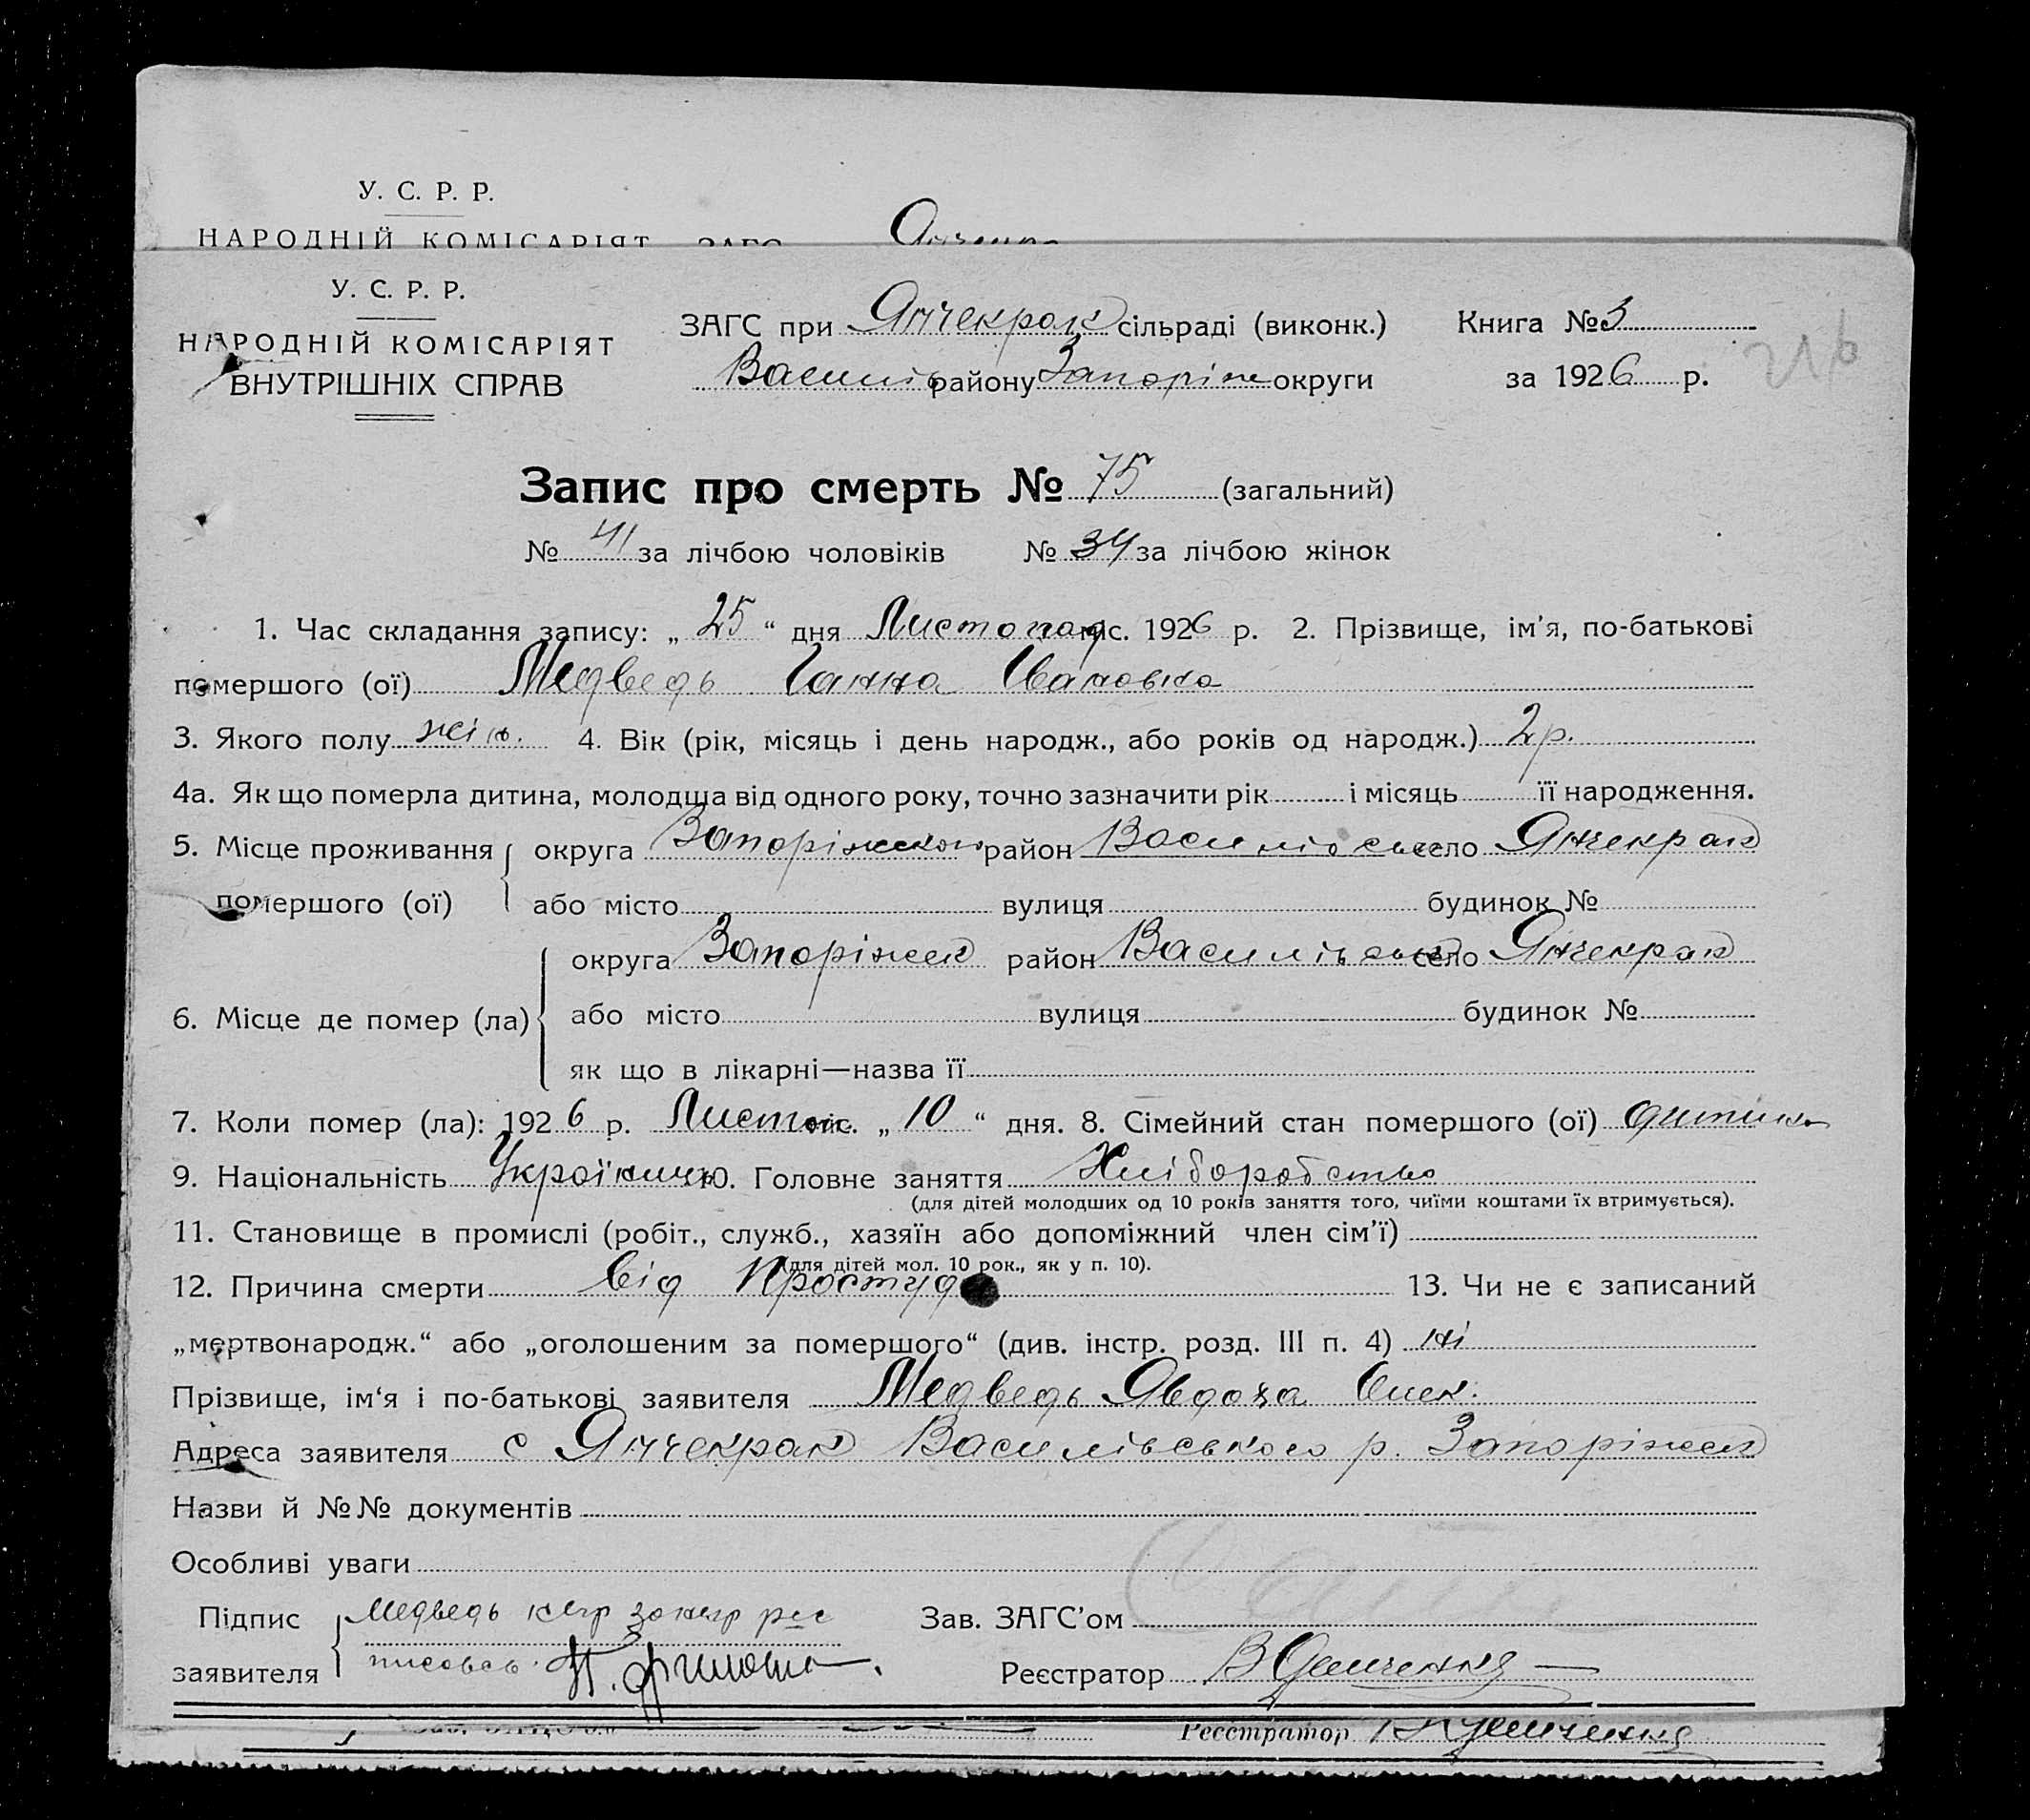 У. С. Р. Р.
НАРОДНІЙ КОМІСАРІЯТ ЗАГС Янчекра
У. С. Р. Р.
НАРОДНІЙ КОМІСАРІЯТ
ВНУТРІШНІХ СПРАВ
ЗАГС при Янчекрак сільраді (виконк.) Книга № 3
Василів району Запоріж округи за 1926 р.
Запис про смерть № 75 (загальний)
№ 41 за лічбою чоловіків № 34 за лічбою жінок
1. Час складання запису: „ 25 “ дня Листопад міс. 1926 р. 2. Прізвище, ім'я, по-батькові
помершого (ої) Медведь Ганна Ивановна
3. Якого полу жін. 4. Вік (рік, місяць і день народж., або років од народж.) 2 р.
4а. Як що померла дитина, молодша від одного року, точно зазначити рік і місяць її народження.
5. Місце проживання округа район село Янчекрак
помершого (ої) або місто вулиця будинок №
округа Запоріжск район Василівськ село Янчекрак
6. Місце де помер (ла) або місто вулиця будинок №
як що в лікарні—назва її
7. Коли помер (ла): 1926 р. Листоп міс. „ 10 “ дня. 8. Сімейний стан помершого (ої) дитина
9. Національність 10. Головне заняття Хліборобство
(для дітей молодших од 10 років заняття того, чиїми коштами їх втримується).
11. Становище в промислі (робіт., служб., хазяїн або допоміжний член сім'ї)
(для дітей мол. 10 рок., як у п. 10).
12. Причина смерти від Простуд 13. Чи не є записаний
„мертвонародж.“ або „оголошеним за помершого“ (див. інстр. розд. III п. 4) ні
Прізвище, ім'я і по-батькові заявителя Медведь Явдоха Олек.
Адреса заявителя с Янчекрак Василівського р. Запоріжск
Назви й №№ документів
Особливі уваги
Підпис Медведь Зав. ЗАГС'ом
заявителя Реєстратор В Демченко
Реєстратор